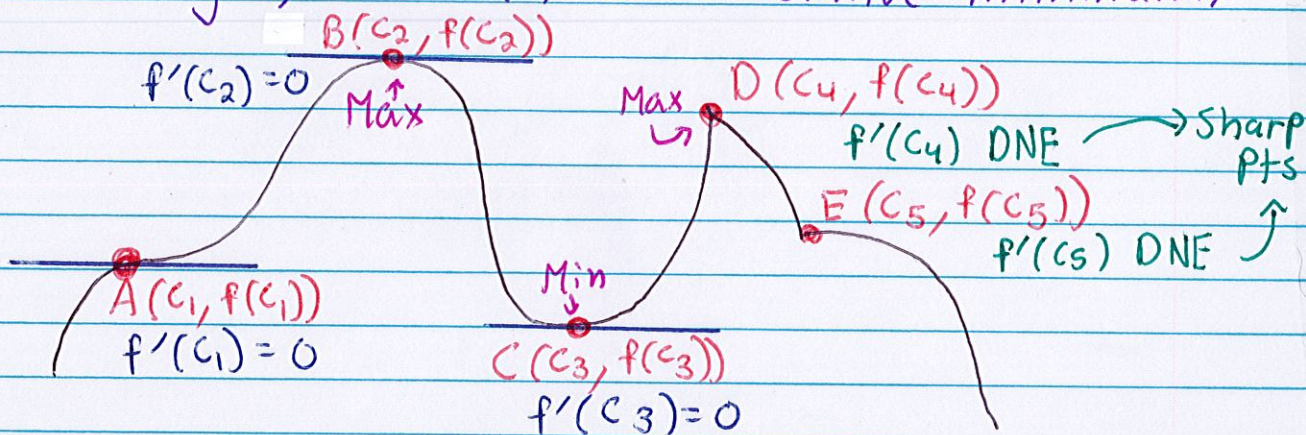 B(C2, f(C2))
f'(C2) = 0
Max
Max
D(C4, f(C4))
f'(C4) DNE
Sharp
Pts
E(C5, f(C5))
f'(C5) DNE
A(C1, f(C1))
f'(C1) = 0
Min
C(C3, f(C3))
f'(C3) = 0